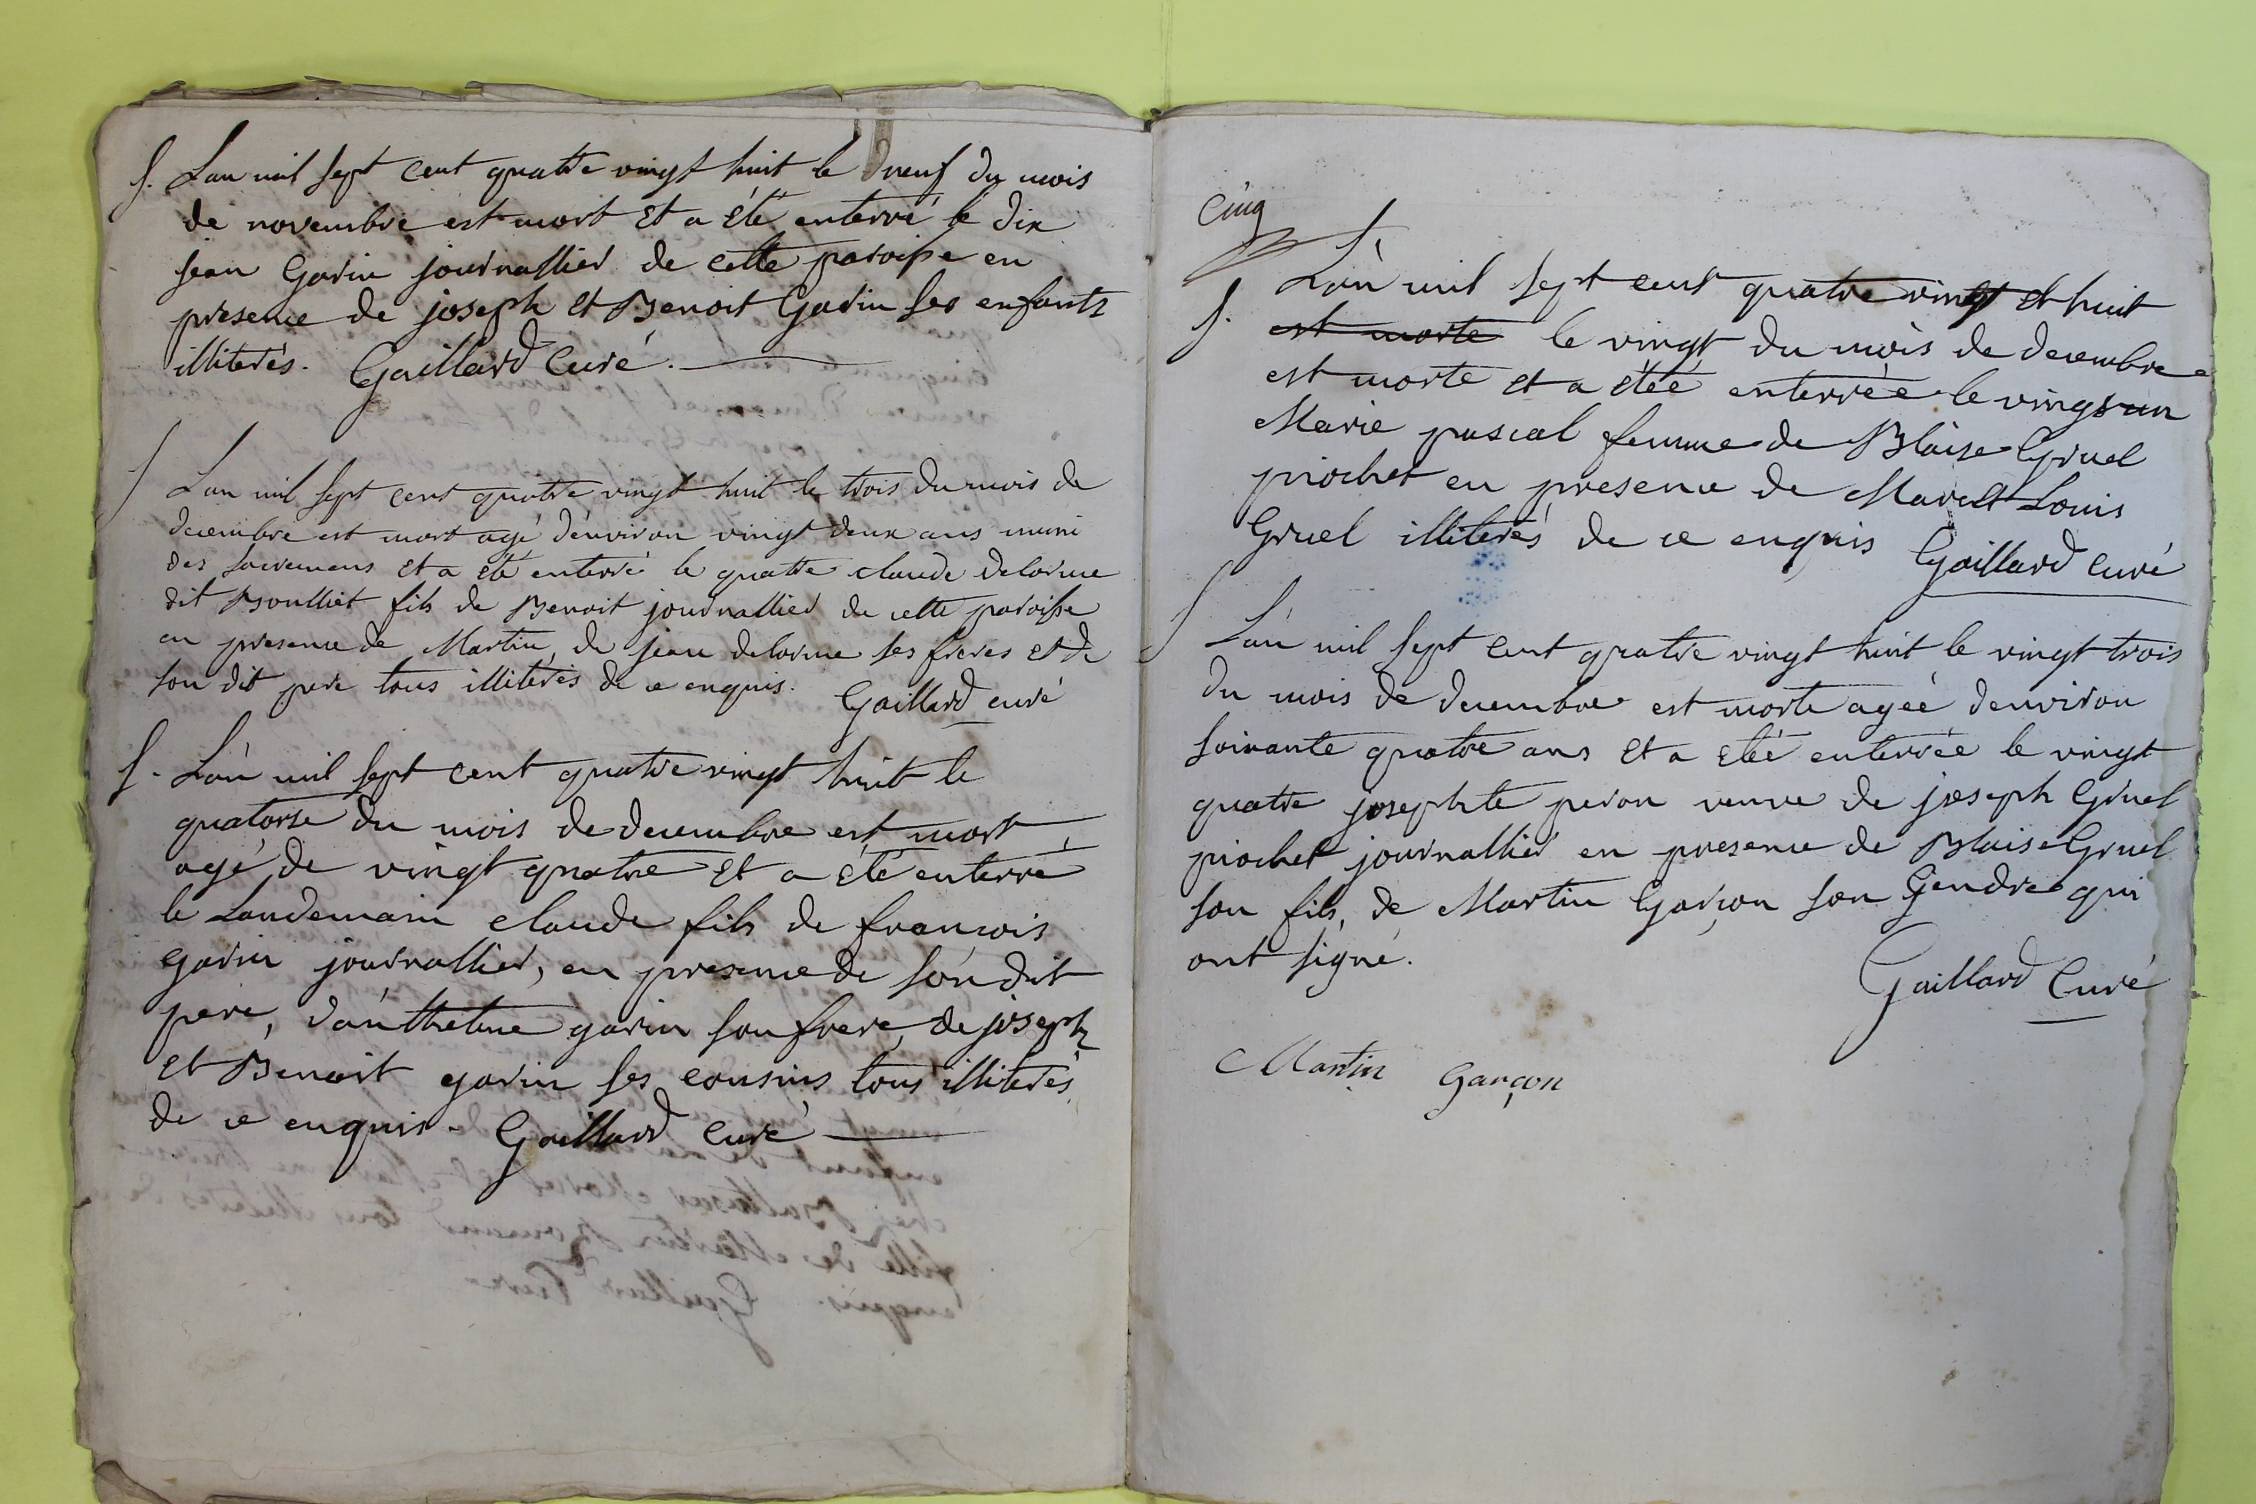 S. L'an mil sept cent quatre vingt huit le neuf du mois
de novembre est mort et a été enterré le dix
jean Garin journallier de cette paroisse en
presence de joseph et Benoit Garin ses enfants
illiterés. Gaillard Curé.
S L'an mil sept cent quatre vingt huit le trois du mois de
decembre est mort agé d'environ vingt deux ans muni
des sacremens et a été enterré le quatre claude delorme
dit Boulliet fils de Benoit journallier de cette paroisse
en presence de Martin, de jean delorme ses freres et de
son dit pere tous illiterés de ce enquis. Gaillard curé
S. L'an mil sept cent quatre vingt huit le
quatorse du mois de decembre est mort
agé de vingt quatre et a été enterré
le Landemain claude fils de francois
garin journallier, en presence de son dit
pere, d'anthelme garin son frere, de joseph
et Benoit garin ses cousins tous illiterés
de ce enquis. Gaillard Curé
Cinq
S. L'an mil sept cent quatre vingt et huit
est morte le vingt du mois de decembre
est morte et a étéé enterrée le vingt un
Marie pascal femme de Blaise Gruel
piochet en presence de Louis
Gruel illiterés de ce enquis Gaillard Curé
S L'an mil sept cent quatre vingt huit le vingt trois
du mois de decembre est morte ageé denviron
soixante quatre ans et a eteé enterrée le vingt
quatre josephte peron veuve de joseph Gruel
piochet journallier en presence de Blaise Gruel
son fils, de Martin Garçon son Gendre qui
ont signé.
Gaillard Curé
Martin Garçon